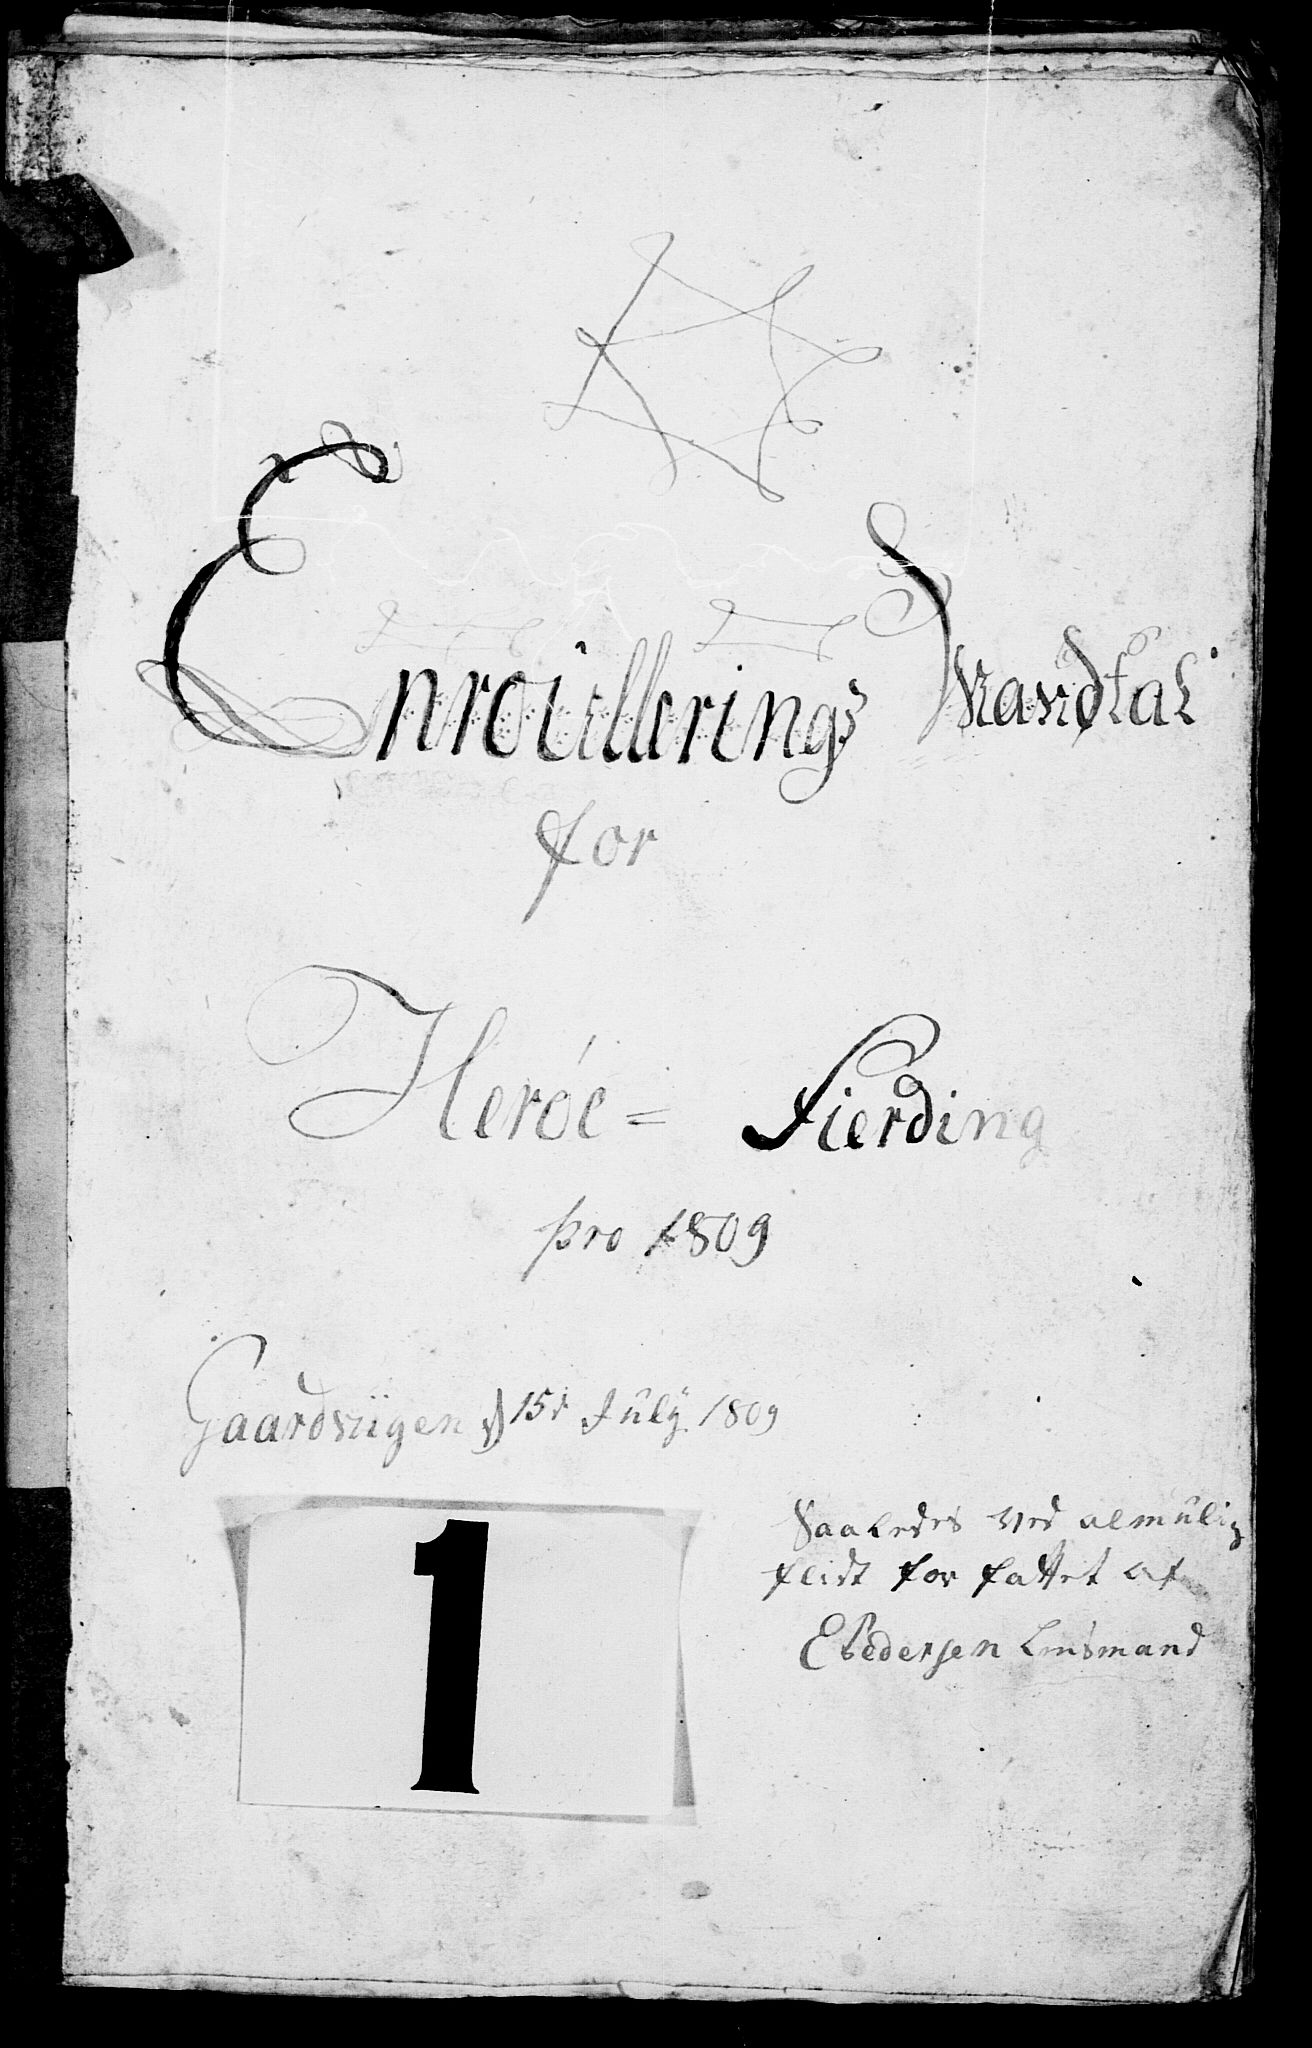 Enroullerings Mandtal
for
Herøe = Fierding
pro 1809
Gaardsiigen d 15de July 1809
1
Saaledes ved almulig
flidt for fattet af
EPedersen Linsmand